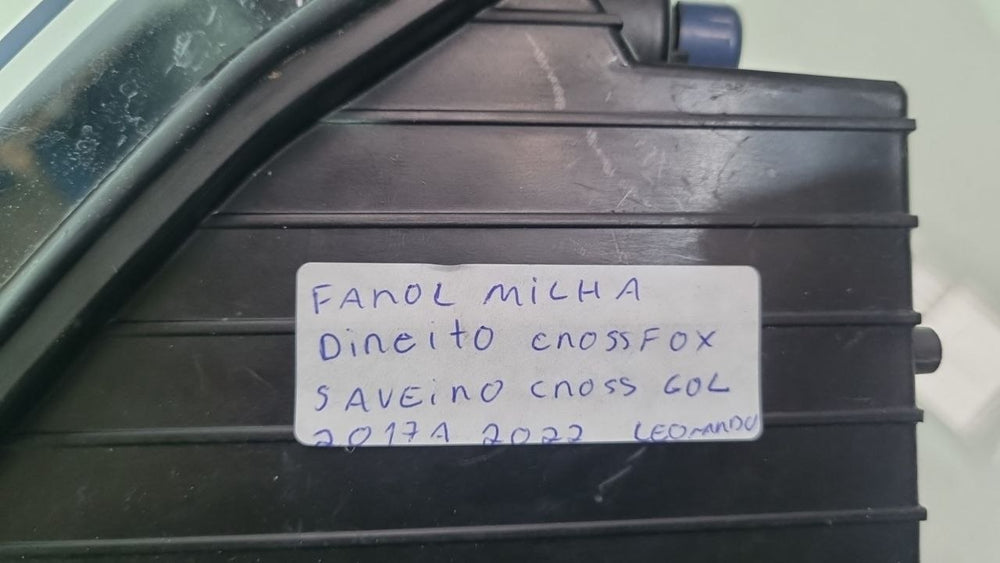 FAROL MILHA
DiREiTO CROSSFOX
SAVEiRO CROSS GOL
2017A 2022 LEONARDO